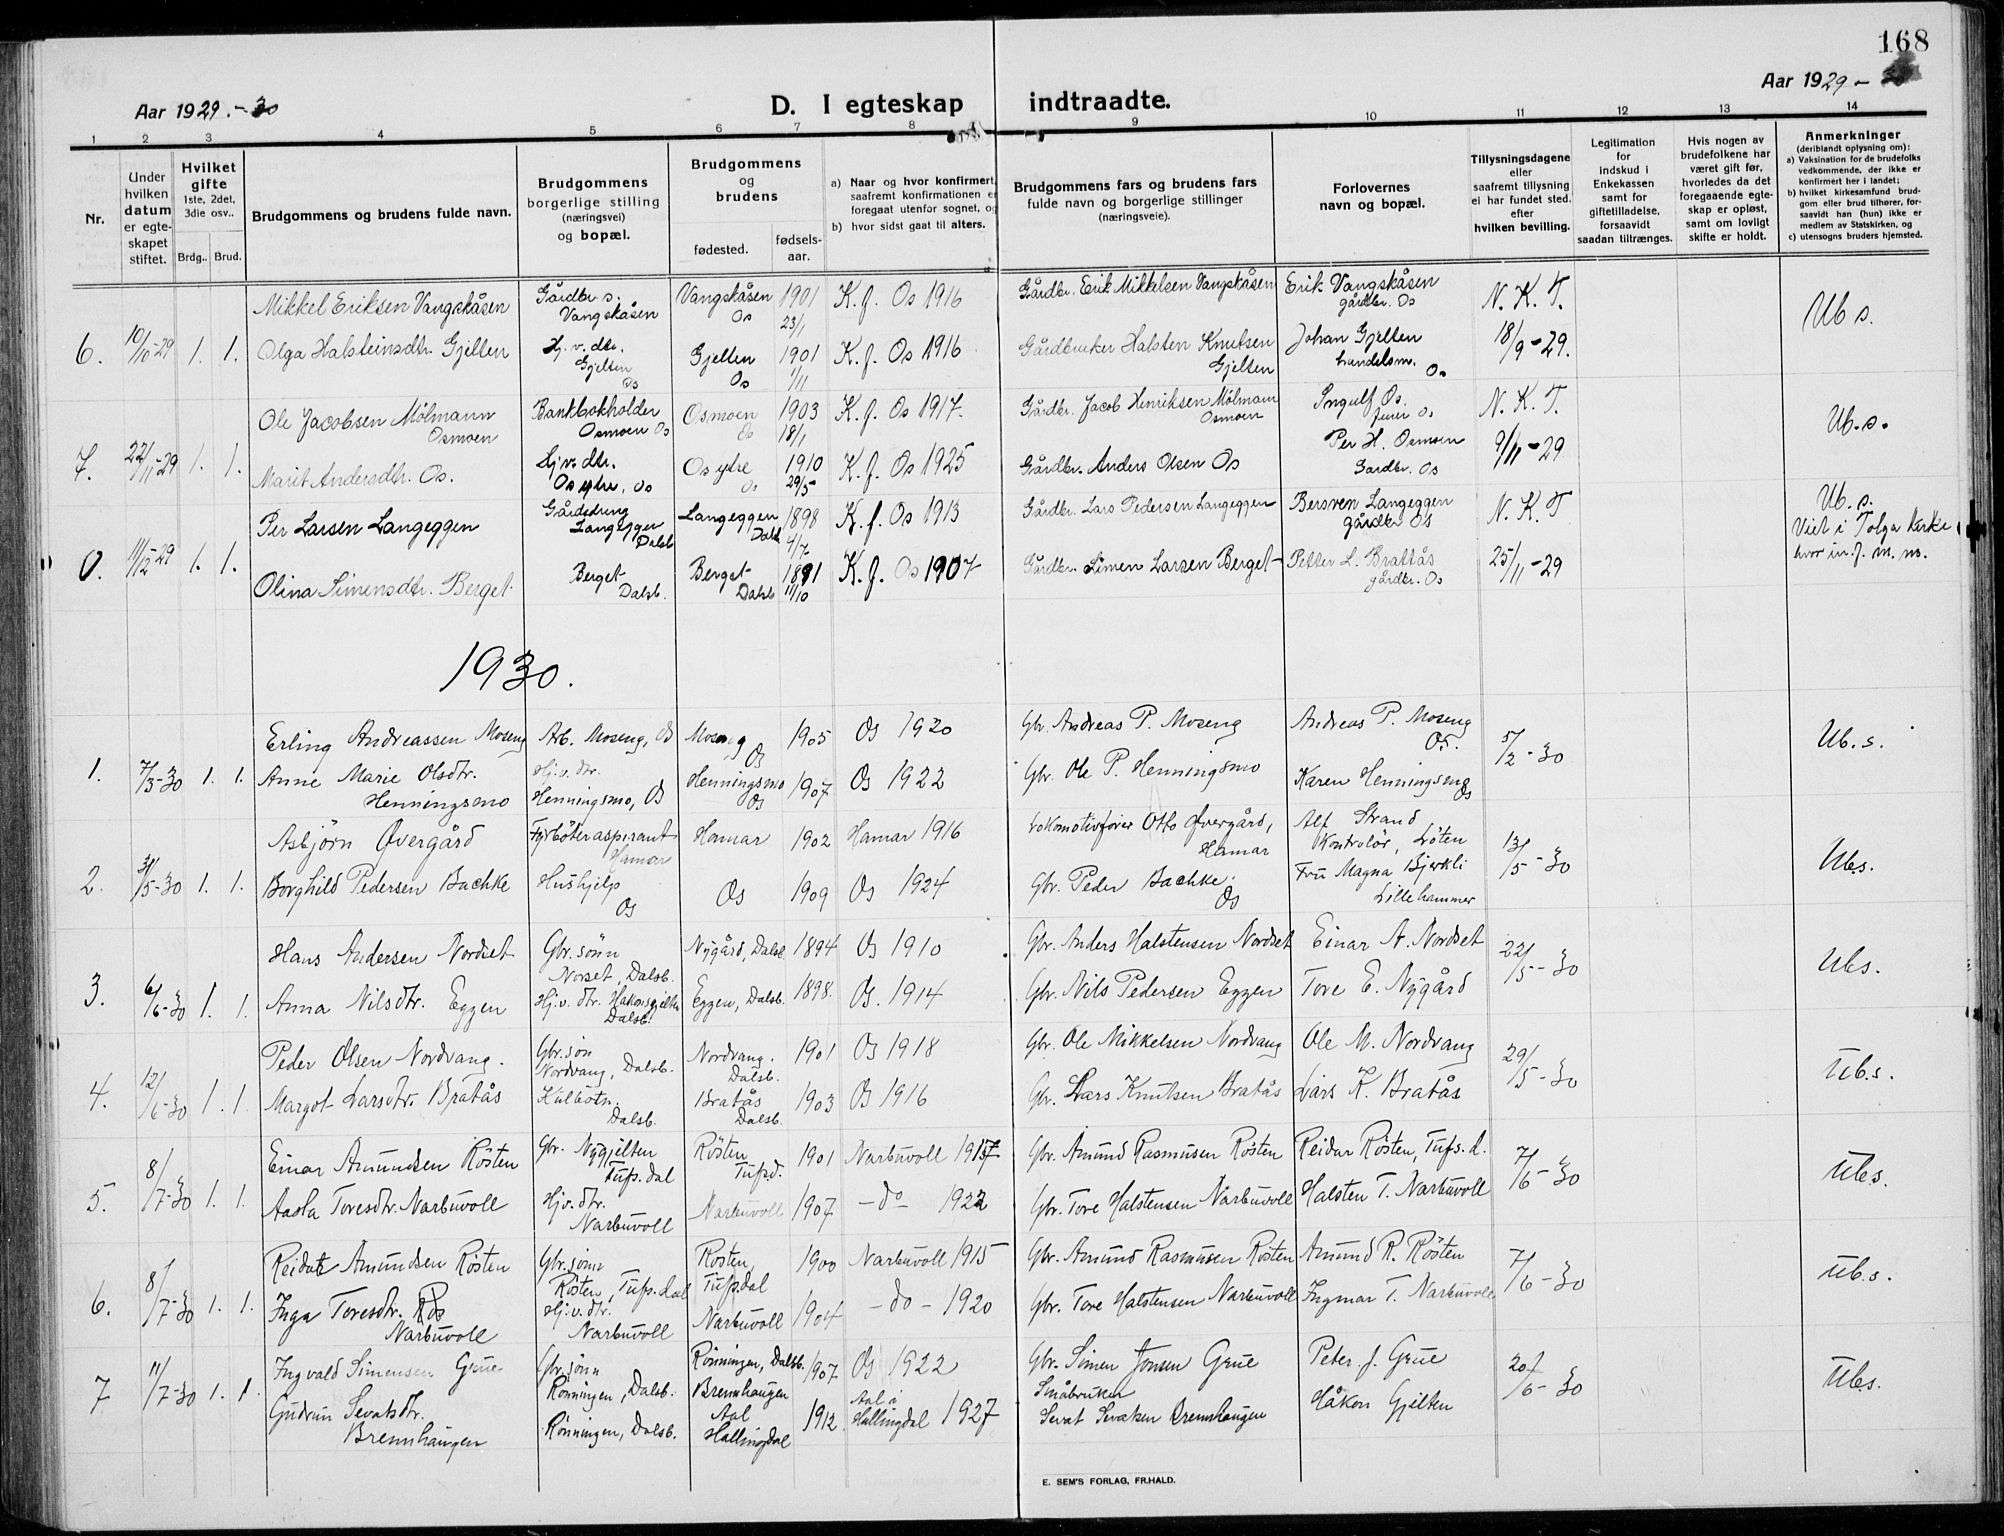 168
Aar 1929.-30
D. I egteskap indtraadte.
Aar 1929 -
1 2 3 4 5 6 7 8 9 10 11 12 13 14
Nr.
Under hvilken datum er egteskapet stiftet.
Hvilket gifte 1ste, 2det, 3die osv..
Brdg.. Brud.
Brudgommens og brudens fulde navn.
Brudgommens borgerlige stilling (næringsvei) og bopæl.
Brudgommens og brudens
fødested.
fødsels-aar.
a) Naar og hvor konfirmert, saafremt konfirmationen er foregaat utenfor sognet, og
b) hvor sidst gaat til alters.
Brudgommens fars og brudens fars fulde navn og borgerlige stillinger (næringsveie).
Forlovernes navn og bopæl.
Tillysningsdagene eller saafremt tillysning ei har fundet sted, efter hvilken bevilling.
Legitimation for indskud i Enkekassen samt for giftetilladelse, forsaavidt saadan tiltrænges.
Hvis nogen av brudefolkene har været gift før, hvorledes da det foregaaende egteskap er opløst, samt om lovligt skifte er holdt.
Anmerkninger (deriblandt oplysning om):
a) Vaksination for de brudefolks vedkommende, der ikke er konfirmert her i landet;
b) hvilket kirkesamfund brudgom eller brud tilhører, forsaavidt han (hun) ikke er medlem av Statskirken, og
c) utensogns bruders hjemsted.
Mikkel Eriksen Vangskåsen Gårdbr. s. Vangskåsen Vangskåsen Os 1901 23/1 K. f. Os 1916 Gårdbr. Erik Mikkelsen Vangskåsen Erik Vangskåsen gårdbr. Os N. K. T. Ub s.
6. 10/10-29 1. 1. Olga Halsteinsdtr. Gjelten Hj. v. dtr. Gjelten Os Gjelten Os 1901 1/11 K. f. Os 1916 Gårdbruker Halsten Knutsen Gjelten Johan Gjelten handelsm. Os 18/9-29.
Ole Jacobsen Mölmann Osmoen Bankbokholder Osmoen Os Osmoen Os 1903 18/1 K. f. Os 1917. Gårdbr. Jacob Henriksen Mölmann Osmoen Ingulf Os. Os N. K. T. Ub. s.
7. 22/11-29 1. 1. Marit Andersdtr. Os. Hj v. dtr. Os ytre, Os Os ytre Os 1910 29/5 K. f. Os 1925 Gårdbr. Anders Olsen Os Per H. Osmoen Gardbr. Os 9/11-29
Per Larsen Langeggen Gårddreng Langeggen Dalsb Langeggen Dalsb 1898 4/7 K. f. Os 1913 Gårdbr. Lars Pedersen Langeggen Bersven Langeggen gårdbr Os N. K. T Ub. s. Viet i Tolga kirke hvor in. f. m. m.
11/12-29 1. 1. Olina Simensdtr. Berget Berget Dalsb. Berget Dalsb 1891 11/10 K. f. Os 1907 Gårdbr. Simen Larsen Berget Petter L. Brattås gårdbr. Os 25/11-29
1930.
Erling Andreassen Moseng Arb. Moseng, Os Moseng Os 1905 Os 1920 Gbr. Andreas P. Moseng Andreas P. Moseng Os. 5/2-30 Ub. s.
1. 7/3-30 1. 1. Anne Marie Olsdtr. Henningsmo Hj. v. dtr. Henningsmo, Os Henningsmo Os 1907 Os 1922 Gbr. Ole P. Henningsmo Karen Henningsmo Os
Asbjörn Øvergård Fyrböteraspirant Hamar Hamar 1902 Hamar 1916 Lokomotivfører Otto Øvergård, Hamar Alf Strand Kontrolör, Löten 13/5-30 Ub.s.
2. 31/5-30 1. 1. Borghild Pedersen Bachke Hushjelp Os Os 1909 Os 1924 Gbr. Peder Bachke. Os Fru Magna Bjerkli Lillehammer
Hans Andersen Nordset Gbr. sönn Norset, Dalsb. Nygård, Dalsb. 1894 Os 1910 Gbr. Anders Halstensen Nordset Einar A. Nordset 22/5-30 Ub.s.
3. 6/6-30 1. 1. Anna Nilsdtr. Eggen Hj. v. dtr. Håkonsgjelten Dalsb. Eggen, Dalsb. 1898. Os. 1914 Gbr. Nils Pedersen Eggen Tore E. Nygård
Peder Olsen Nordvang. Gbr. sön Nordvang, Dalsb. Nordvang. Dalsb. 1901 Os 1918 Gbr. Ole Mikkelsen Nordvang Ole M. Nordvang 29/5-30 Ub.s.
4. 12/6-30 1. 1. Margot Larsdtr. Bratås Dalsb. Bratås Dalsb. 1903 Os 1916 Gbr. Lars Knutsen Bratås Lars K. Bratås
Einar Amundsen Rösten Gbr. Nygjelten Tufs. dal Rösten Tufsd. 1901 Narbuvoll 1917 Gbr. Amund Rasmusen Rösten Reidar Rösten, Tufs. d. 7/6-30 Ub.s.
5. 8/7-30 1. 1. Aasta Toresdtr. Narbuvoll Hj. v. dtr. Narbuvoll Narbuvoll 1907 - do - 1922 Gbr. Tore Halstensen Narbuvoll Halsten T. Narbuvoll
Reidar Amundsen Rösten Gbr. sönn Rösten, Tufs. dal Rösten, Tufsdal 1900 Narbuvoll 1915 Gbr. Amund Rasmusen Rösten Amund R. Rösten 7/6-30 Ub.s.
6. 8/7-30 1. 1. Inga Toresdtr. Narbuvoll Hj. v. dtr. Narbuvoll Narbuvoll 1904 - do - 1920 Gbr. Tore Halstensen Narbuvoll Ingmar T. Narbuvoll
Ingvald Simensen Grue Gbr. sönn Rönningen, Dalsb. Rönningen, Dalsb. 1907 Os 1922 Gbr. Simen Jonsen Grue Peter J. Grue 20/6-30 Ub.s.
7 11/7-30 1. 1 Gudrun Sevatsdtr. Brennhaugen Rönningen, Dalsb. Brennhaugen Aal Hallingdal 1912. Aal i Hallingdal 1927 Småbruker Sevat Sevatsen Brennhaugen Håkon Gjelten
E. SEM'S FORLAG, FR.HALD.